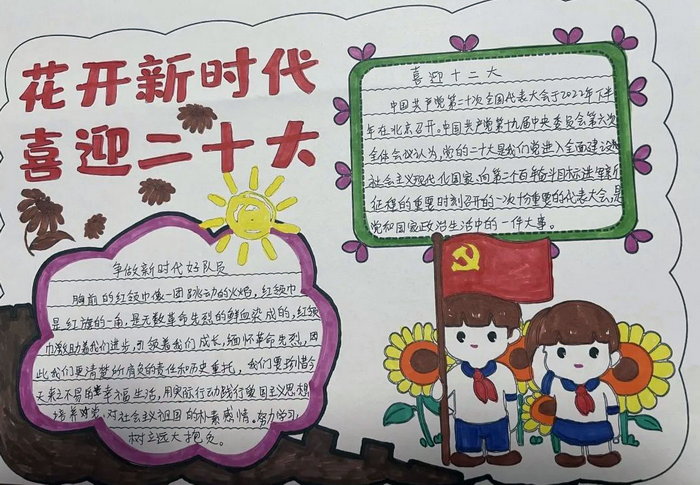 花开新时代
喜迎二十大
喜迎十二大
中国共产党第二十次全国代表大会于2022年下半
年在北京召开。中国共产党第十九届中央委员会第六次
全体会议认为，党的二十大是我们党进入全面建设
社会主义现代化国家、向第二个百年奋斗目标进军新
征程的重要时刻召开的一次十分重要的代表大会，是
党和国家政治生活中的一件大事。
争做新时代好队员
胸前的红领巾像一团跳动的火焰，红领巾
是红旗的一角，是无数革命先烈的鲜血染成的，红领
巾激励着我们进步，引领着我们成长，缅怀革命先烈，因
此我们更清楚所肩负的责任和历史重托，我们要珍惜今
天来之不易的幸福生活，用实际行动践行爱国主义思想
培养对党、对社会主义祖国的朴素感情。努力学习，
树立远大抱负。